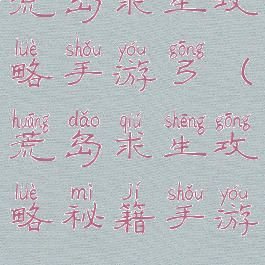 荒岛求生攻
lüè shǒu yóu gōng
略手游弓（
huāng dǎo qiú shēng gōng
荒岛求生攻
lüè mì jí shǒu yóu
略秘籍手游